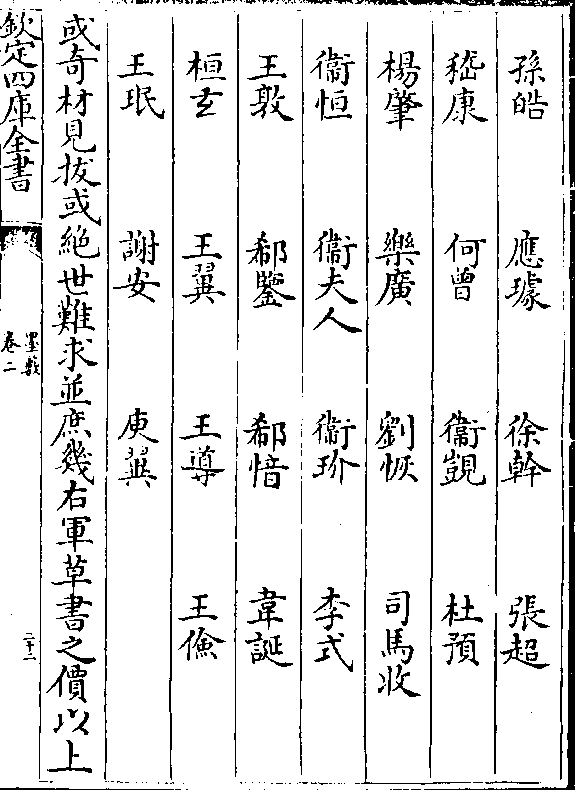 孫皓　應璩　徐幹　張超
嵇康　何曾　衞覬　杜預
楊肇　樂廣　劉恢　司馬攸
衞恒　衞夫人　衞玠　李式
王敦　郗鑒　郗愔　韋誕
桓𤣥　王翼　王導　王儉
王珉　謝安　庾翼
或奇材見拔或絶世難求並庶幾右軍草書之價以上
欽定四庫全書
墨藪
卷二
二十二